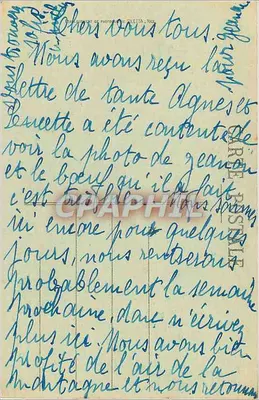 Chers vous tous.
Nous avons reçu la
lettre de tante Agnes et
Lucette a été contente de
voir la photo de jeannot
et le bœuf qu'il a fait
c'est Nous sommes
ici encore pour quelques
jours, nous rentrerons
probablement la semaine
prochaine, donc n'écrivez
plus ici. Nous avons bien
profité de l'air de la
montagne et nous retournons
pour jeannot
CARTE POSTALE
CARAPHIL